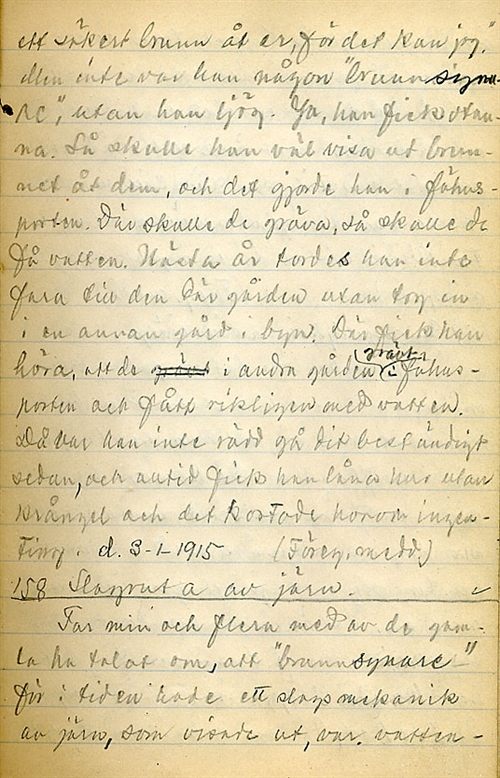 ett säkert brunn åt er, för det kan jag."
Men inte var han någon "brunnsyna-
re", utan han ljög. Ja, han fick stan-
na. Så skulle han väl visa ut brun-
net åt dem, och det gjorde han i fähus-
porten. Där skulle de gräva, så skulle de
få vatten. Nästa år tordes han inte
fara till den där gården utan tog in
i en annan gård i byn. Där fick han
höra, att de grävt i andra gården grävt i fähus-
porten och fått rikligen med vatten.
Då var han inte rädd gå dit beständigt
sedan, och alltid fick han låna hus utan
krångel och det kostade honom ingen-
ting. d. 3-1-1915. (Föreg. medd.)
158 Slagruta av järn.
Far min och flera med av de gam-
la ha talat om, att "brunnsynare"
för i tiden hade ett slags mekanik
av järn, som visade ut, var vatten-